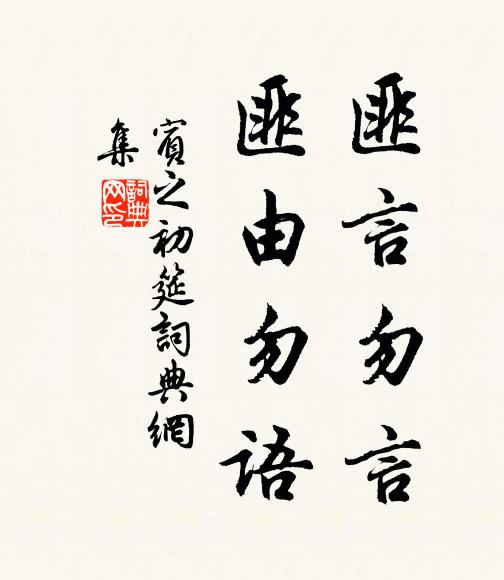 匪言勿言
匪由勿語
賓之初筵詞典網
集
詞典网印